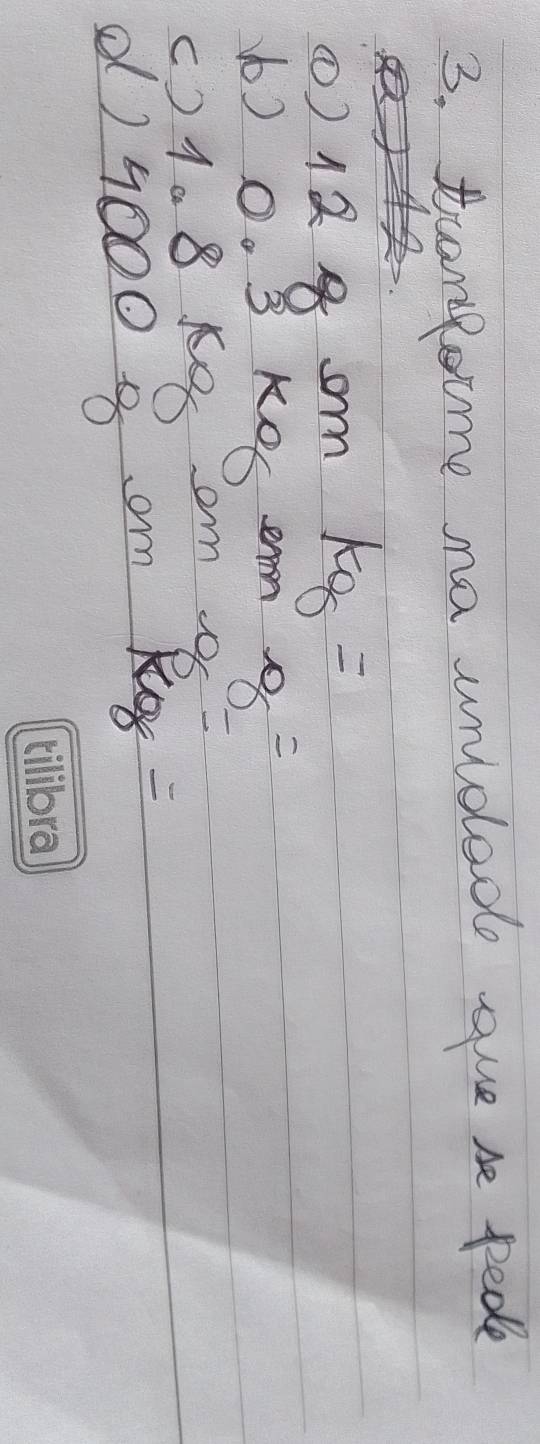 3. tranforme na unidade que se pede
a) 12 g em kg =
b) 0.3 kg em g =
c) 1.8 kg em g =
d) 4000 g em kg =
tilibra